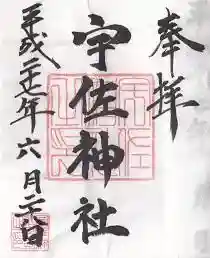 奉拝
宇佐神社
平成二十七年六月二十八日